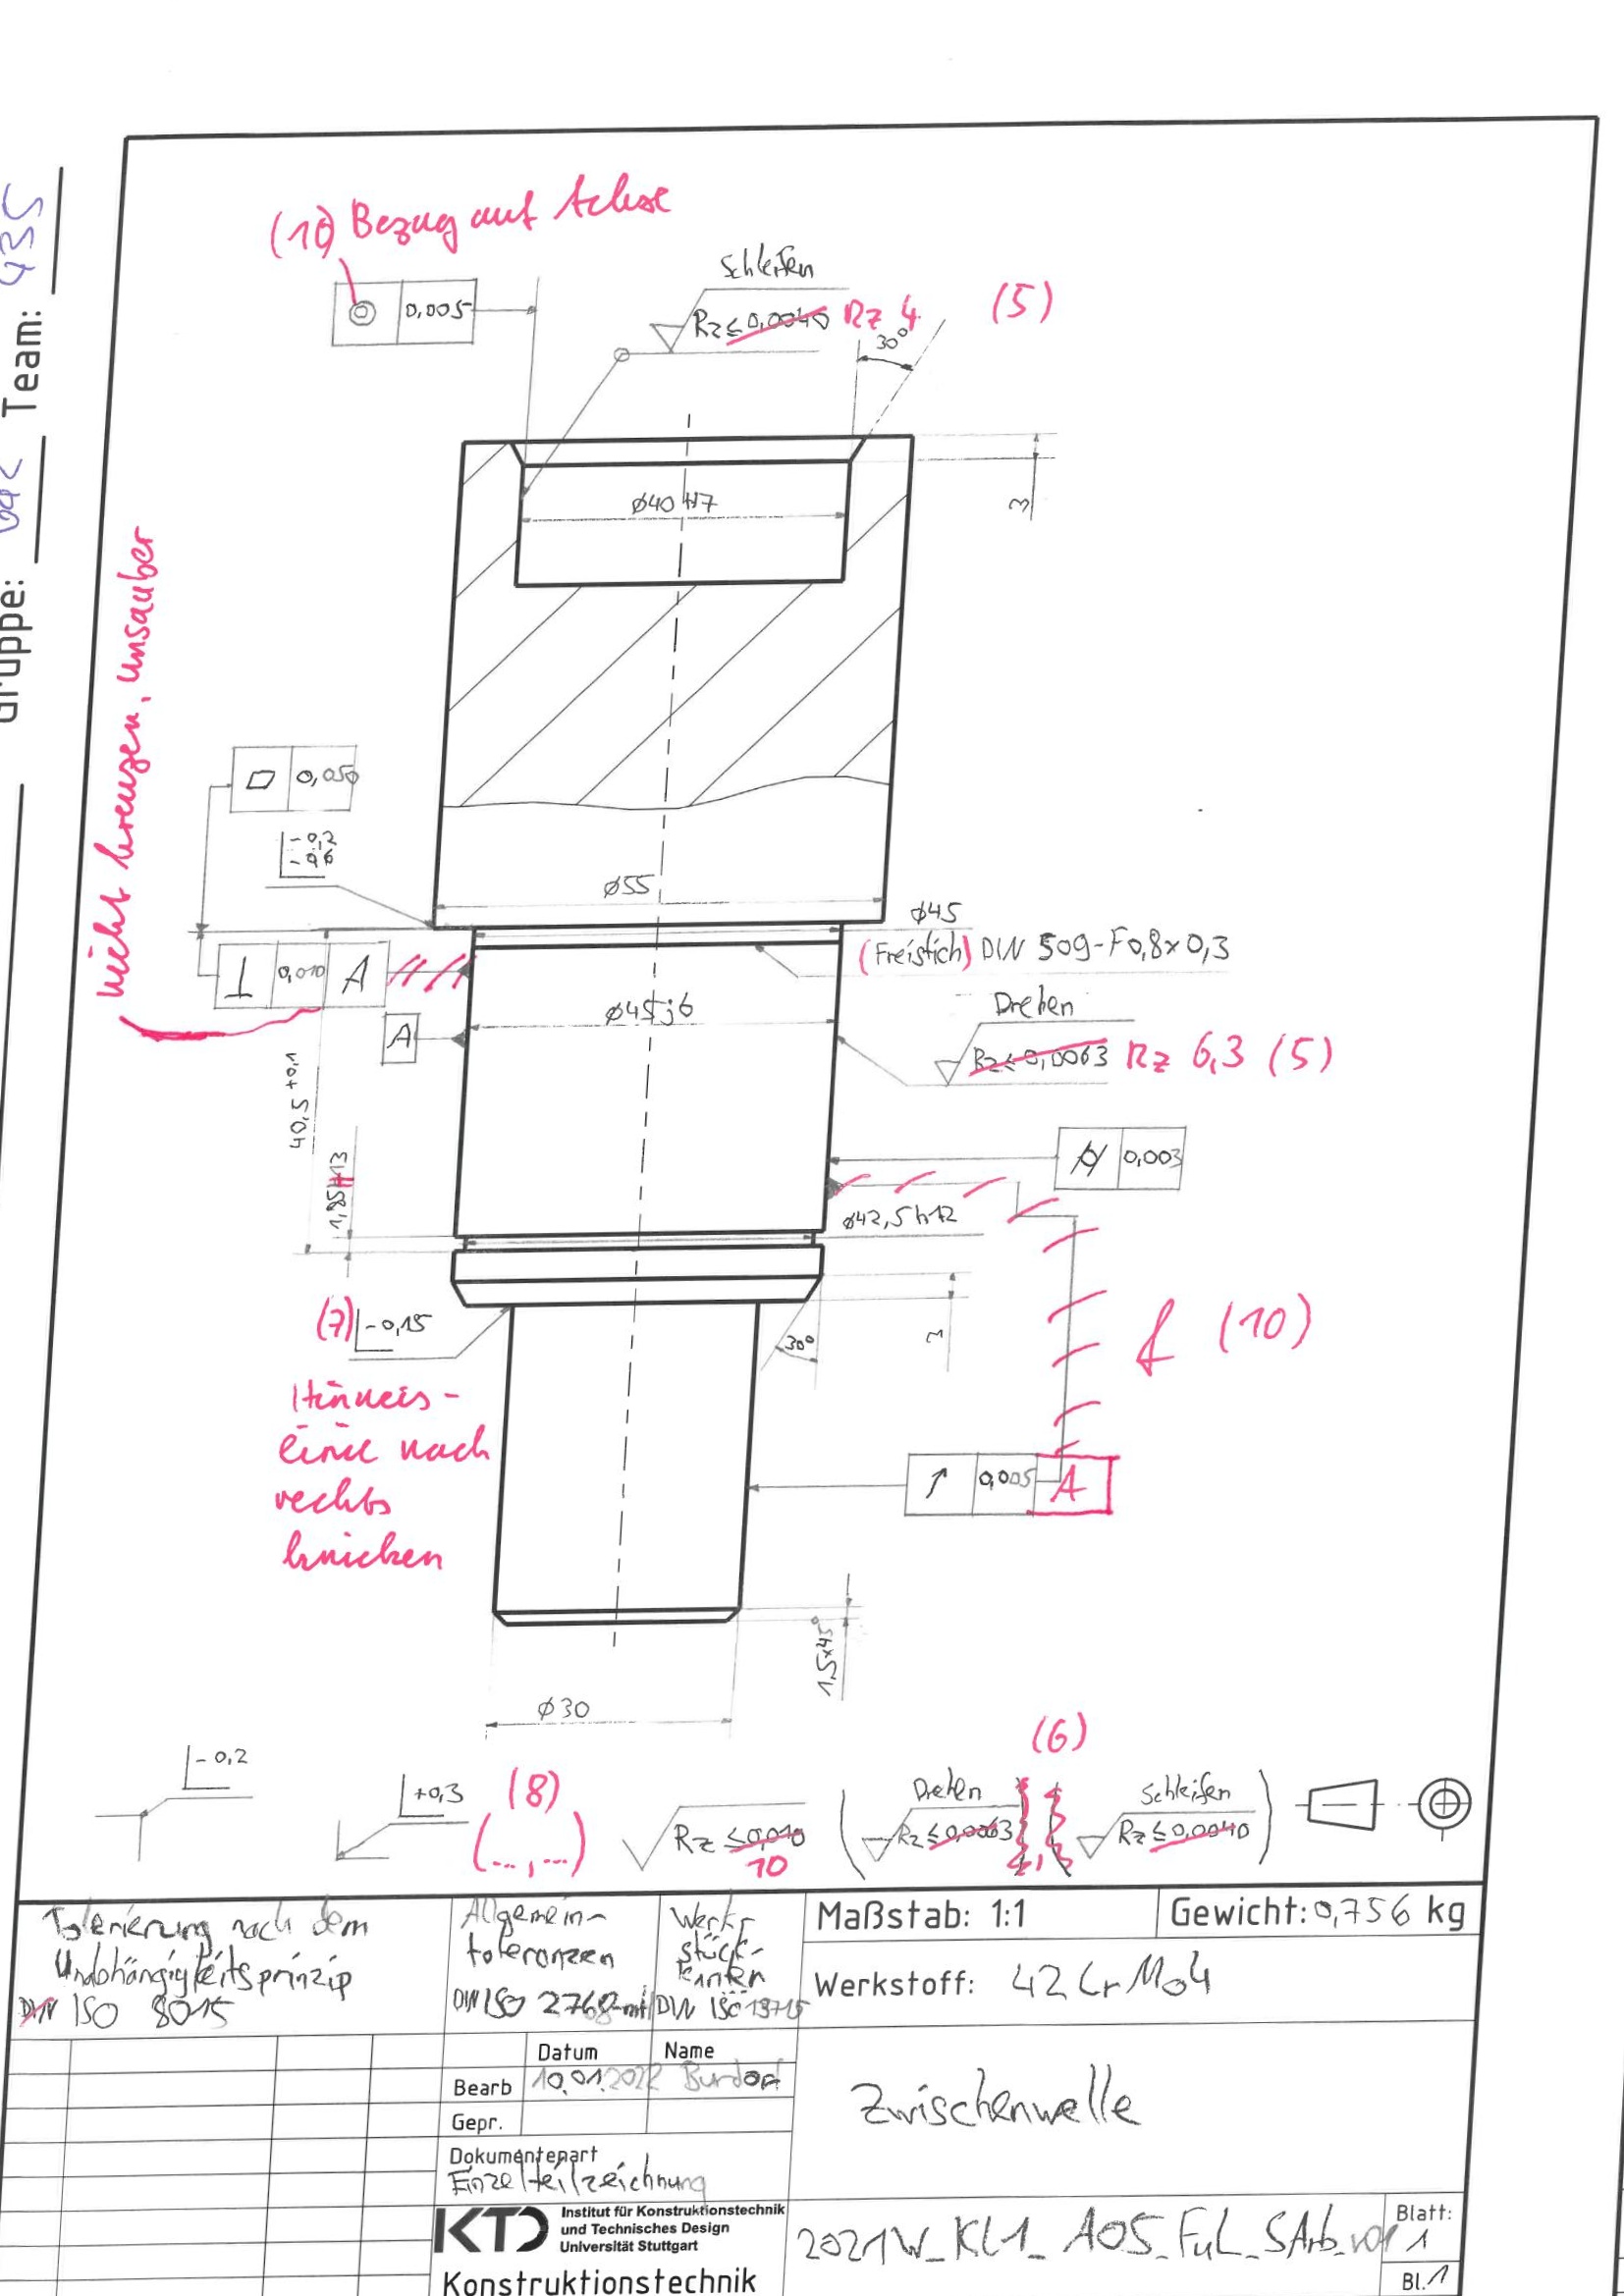 Gruppe: Team: 435
(10) Bezug auf Achse
◎ 0,005
Schleifen
Rz ≤ 0,0040 Rz 4
(5)
30°
3
⌀40 H7
nicht kreuzen, unsauber
⏥ 0,050
-0,2
-0,6
⌀55
⌀45
(Freistich) DIN 509-F0,8x0,3
⊥ 0,010 A
⌀45j6
A
Drehen
Rz ≤ 0,0063 Rz 6,3 (5)
40,5 +0,1
⌭ 0,003
1,85H13
⌀42,5h12
(7) -0,15
3
30°
f (10)
Hinweis-
linie nach
rechts
knicken
↗ 0,005 A
1,5x45°
⌀30
(6)
-0,2
+0,3
(8)
(...,...)
Rz ≤ 0,010
10
Drehen
Rz ≤ 0,0063
Schleifen
Rz ≤ 0,0040
Tolerierung nach dem
Unabhängigkeitsprinzip
DIN ISO 8015
Allgemein-
toleranzen
DIN ISO 2768-mH
Werk-
stück-
kanten
DIN ISO 13715
Maßstab: 1:1
Gewicht: 0,756 kg
Werkstoff: 42CrMo4
Datum Name
Bearb 10.01.2022 Burdorf
Gepr.
Zwischenwelle
Dokumentenart
Einzelteilzeichnung
KTD
Institut für Konstruktionstechnik
und Technisches Design
Universität Stuttgart
Konstruktionstechnik
2021W_KL1_A05_FuL_SArb_v01
Blatt:
1
Bl. 1